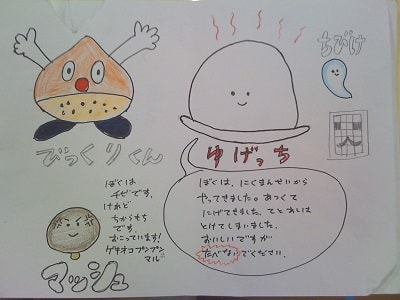 びっくりくん
ゆげっち
ちびけ
ぼくは
チビです。
けれど
ちからもち
です。
おこっています!
ゲキオコプンプン
マル
マッシュ
ぼくは、にくまんせいから
やってきました。あつくて
にげてきました。てとあしは
とけてしまいました。
おいしいですが
たべないでください。